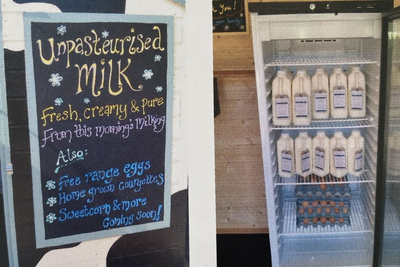 Unpasteurised
Milk
Fresh, creamy & pure
From this morning's milking
Also:
Free range eggs
Home grown courgettes
Sweetcorn & more
Coming soon!